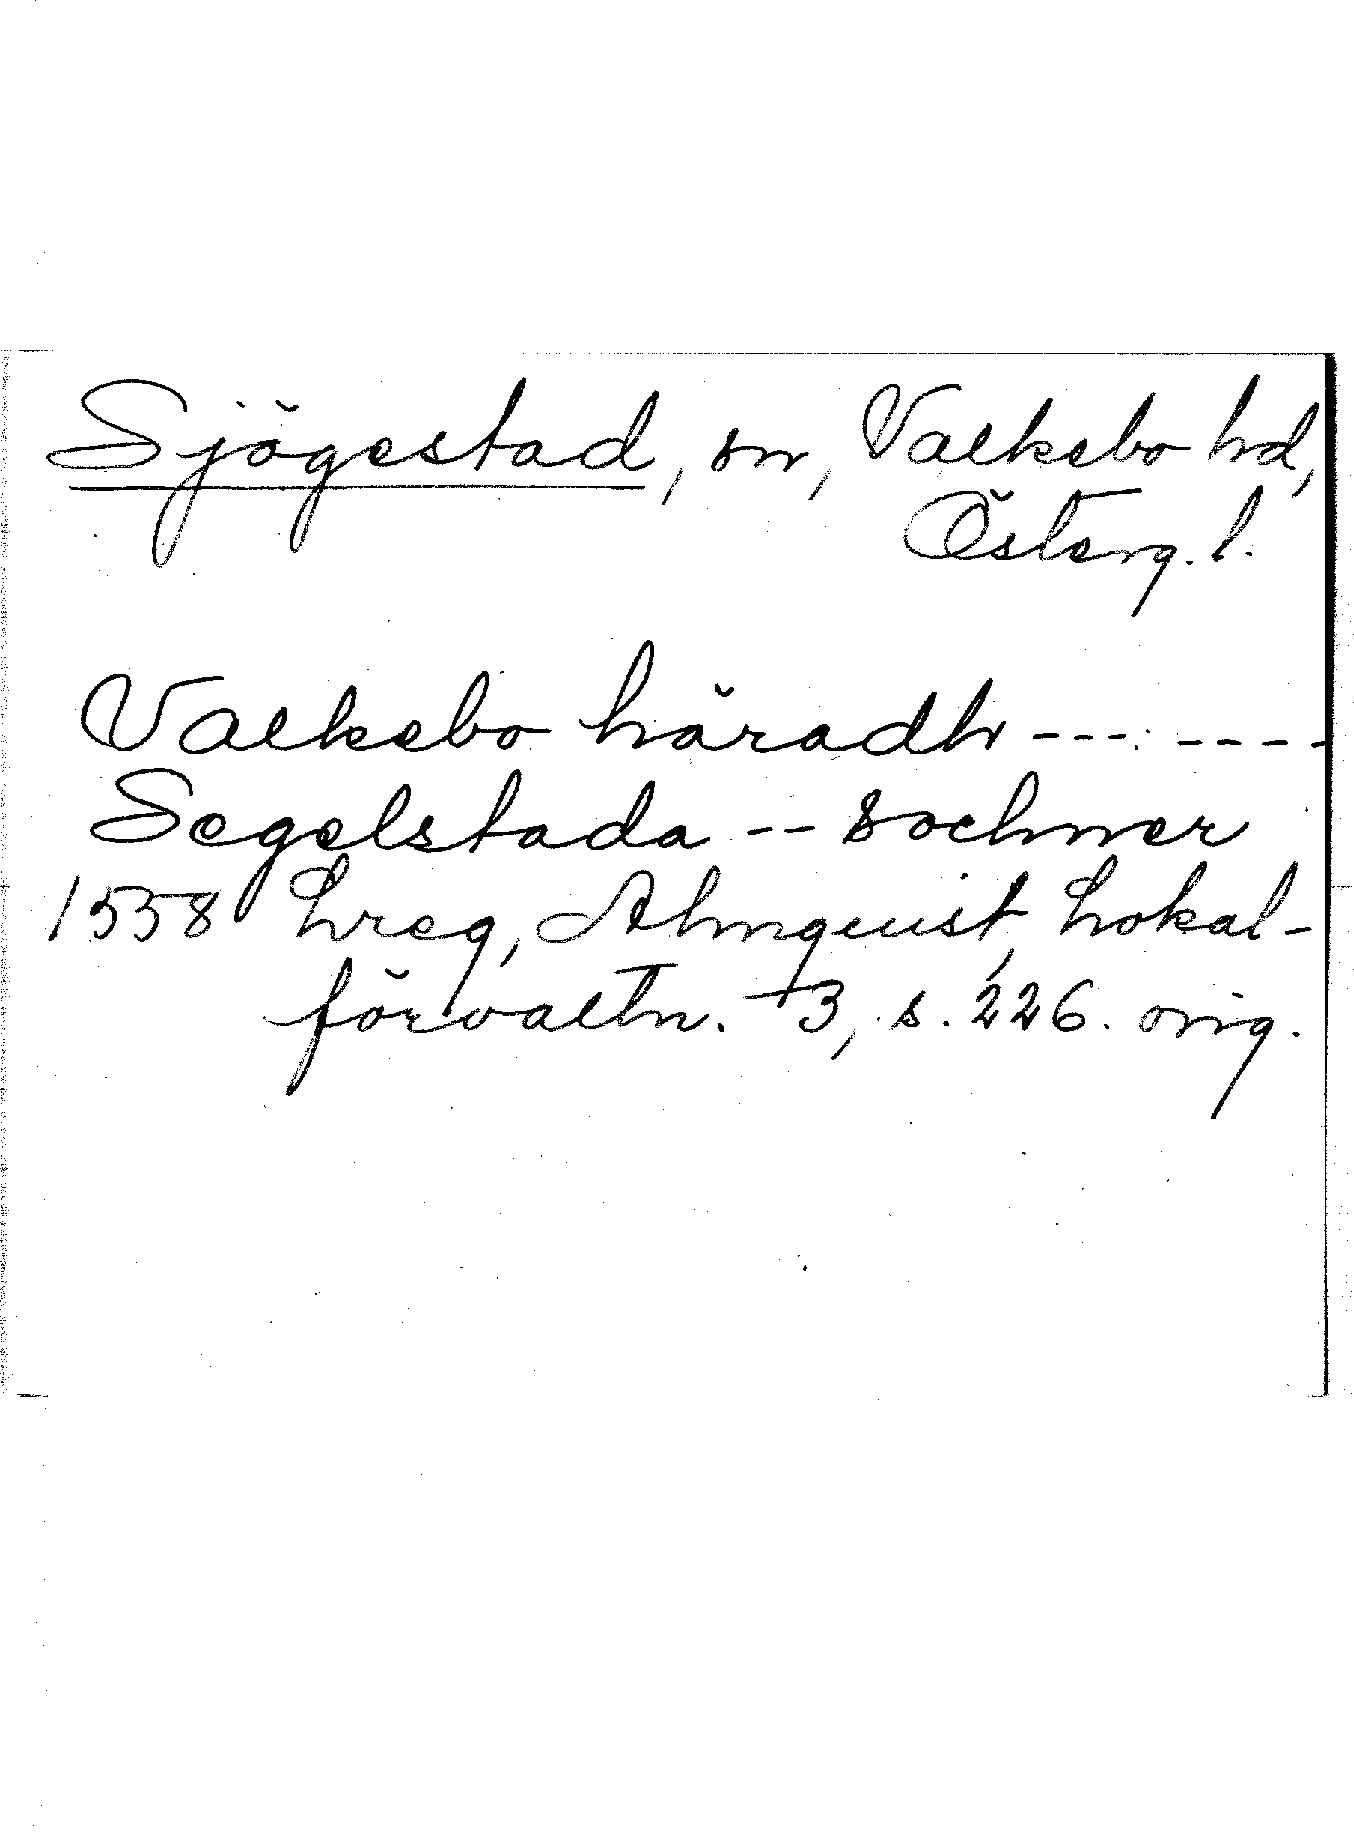 Sjögestad, sn, Valkebo hd,
Österg. l.
Valkebo häradh --- ----
Segelstada -- sochner
1558 Lreg, Almquist, Lokal-
förvaltn. T3, s. 226. orig.